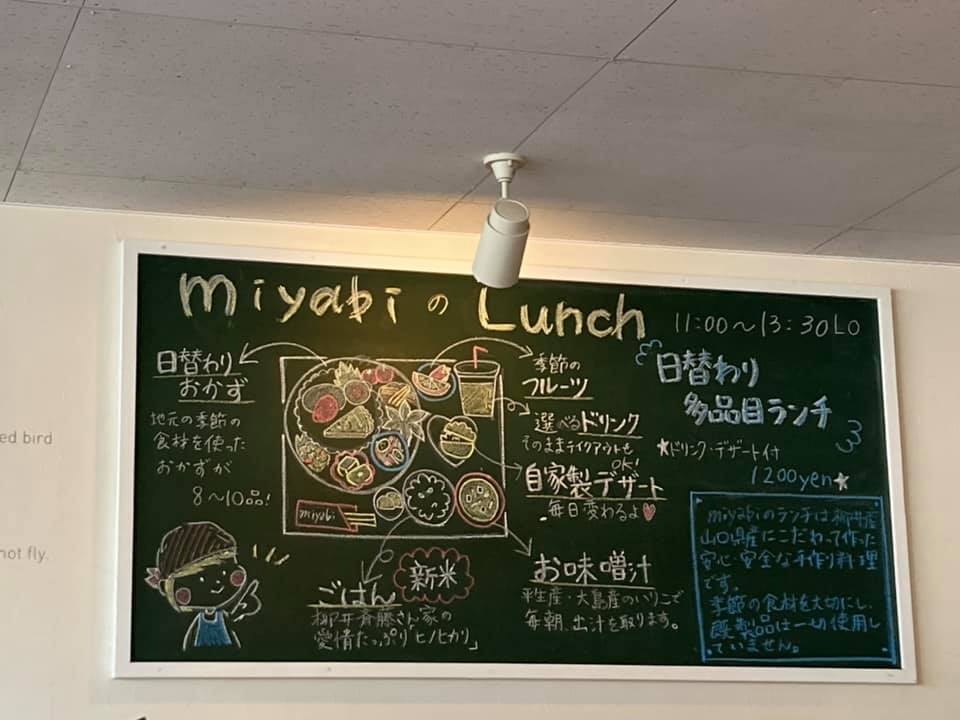 miyabiの Lunch
11:00〜13:30LO
日替わり
おかず
地元の季節の
食材を使った
おかずが
8〜10品!
季節の
フルーツ
選べるドリンク
そのままテイクアウトも
OK!
自家製デザート
毎日変わるよ
miyabi
日替わり
多品目ランチ
★ドリンク・デザート付
1200yen★
ごはん
新米
柳井斉藤さん家の
愛情たっぷり「ヒノヒカリ」
お味噌汁
平生産・大島産のいりこで
毎朝、出汁を取ります。
miyabiのランチは柳井産
山口県産にこだわって作った
安心・安全な手作り料理
です。
季節の食材を大切にし、
既製品は一切使用し
ていません。
ed bird
not fly.